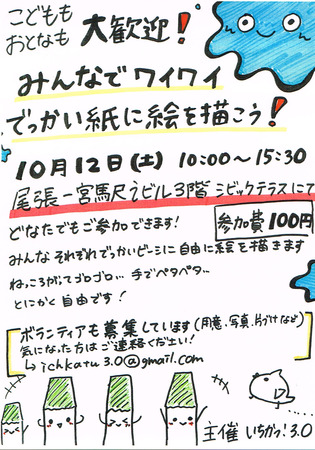 こどもも
おとなも 大歓迎!
みんなで ワイワイ
でっかい紙に絵を描こう!
10月12日(土) 10:00〜15:30
尾張一宮駅 i-ビル3階 シビックテラスにて
どなたでもご参加できます! 参加費100円
みんなそれぞれでっかいビーシに自由に絵を描きます
ねっころがってゴロゴロ… 手でペタペタ…
とにかく自由です!
ボランティアも募集しています(用意、写真、片づけなど)
気になった方はご連絡ください!
↳ichkatu3.0@gmail.com
主催 いちかつ!3.0